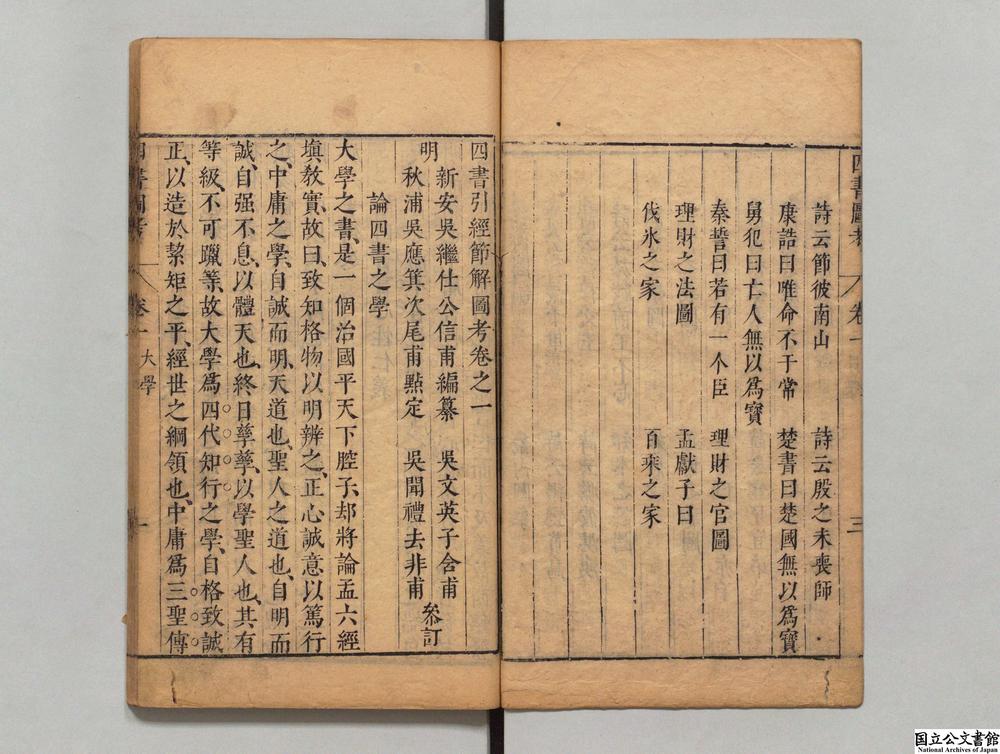 四書圖考 卷一 三
詩云節彼南山 詩云殷之未喪師
康誥曰唯命不于常 楚書曰楚國無以爲寶
舅犯曰亡人無以爲寶
秦誓曰若有一个臣 理財之官圖
理財之法圖 孟獻子曰
伐氷之家 百乘之家
四書引經節解圖考卷之一
新安吳繼仕公信甫編纂 吳文英子含甫
明 叅訂
秋浦吳應箕次尾甫㸃定 吳聞禮去非甫
論四書之學
大學之書、是一個治國平天下腔子、却將論孟六經
塡敎實、故曰、致知格物以明辨之、正心誠意以篤行
之、中庸之學、自誠而明、天道也、聖人之道也、自明而
誠、自强不息、以體天也、終日孳孳、以學聖人也、其有
等級、不可躐等、故大學爲四代知行之學、自格致誠
正、以造於絜矩之平、經世之綱領也、中庸爲三聖傳
四書圖考 卷一 大學 一
国立公文書館
National Archives of Japan